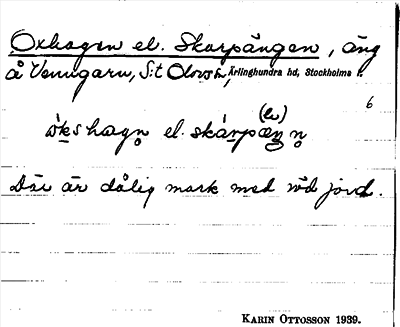 Oxhagen el. Skarpängen, äng
å Venngarn, S:t Olovs sn, Ärlinghundra hd, Stockholms l.
6
el.
Där är dålig mark med röd jord.
KARIN OTTOSSON 1939.